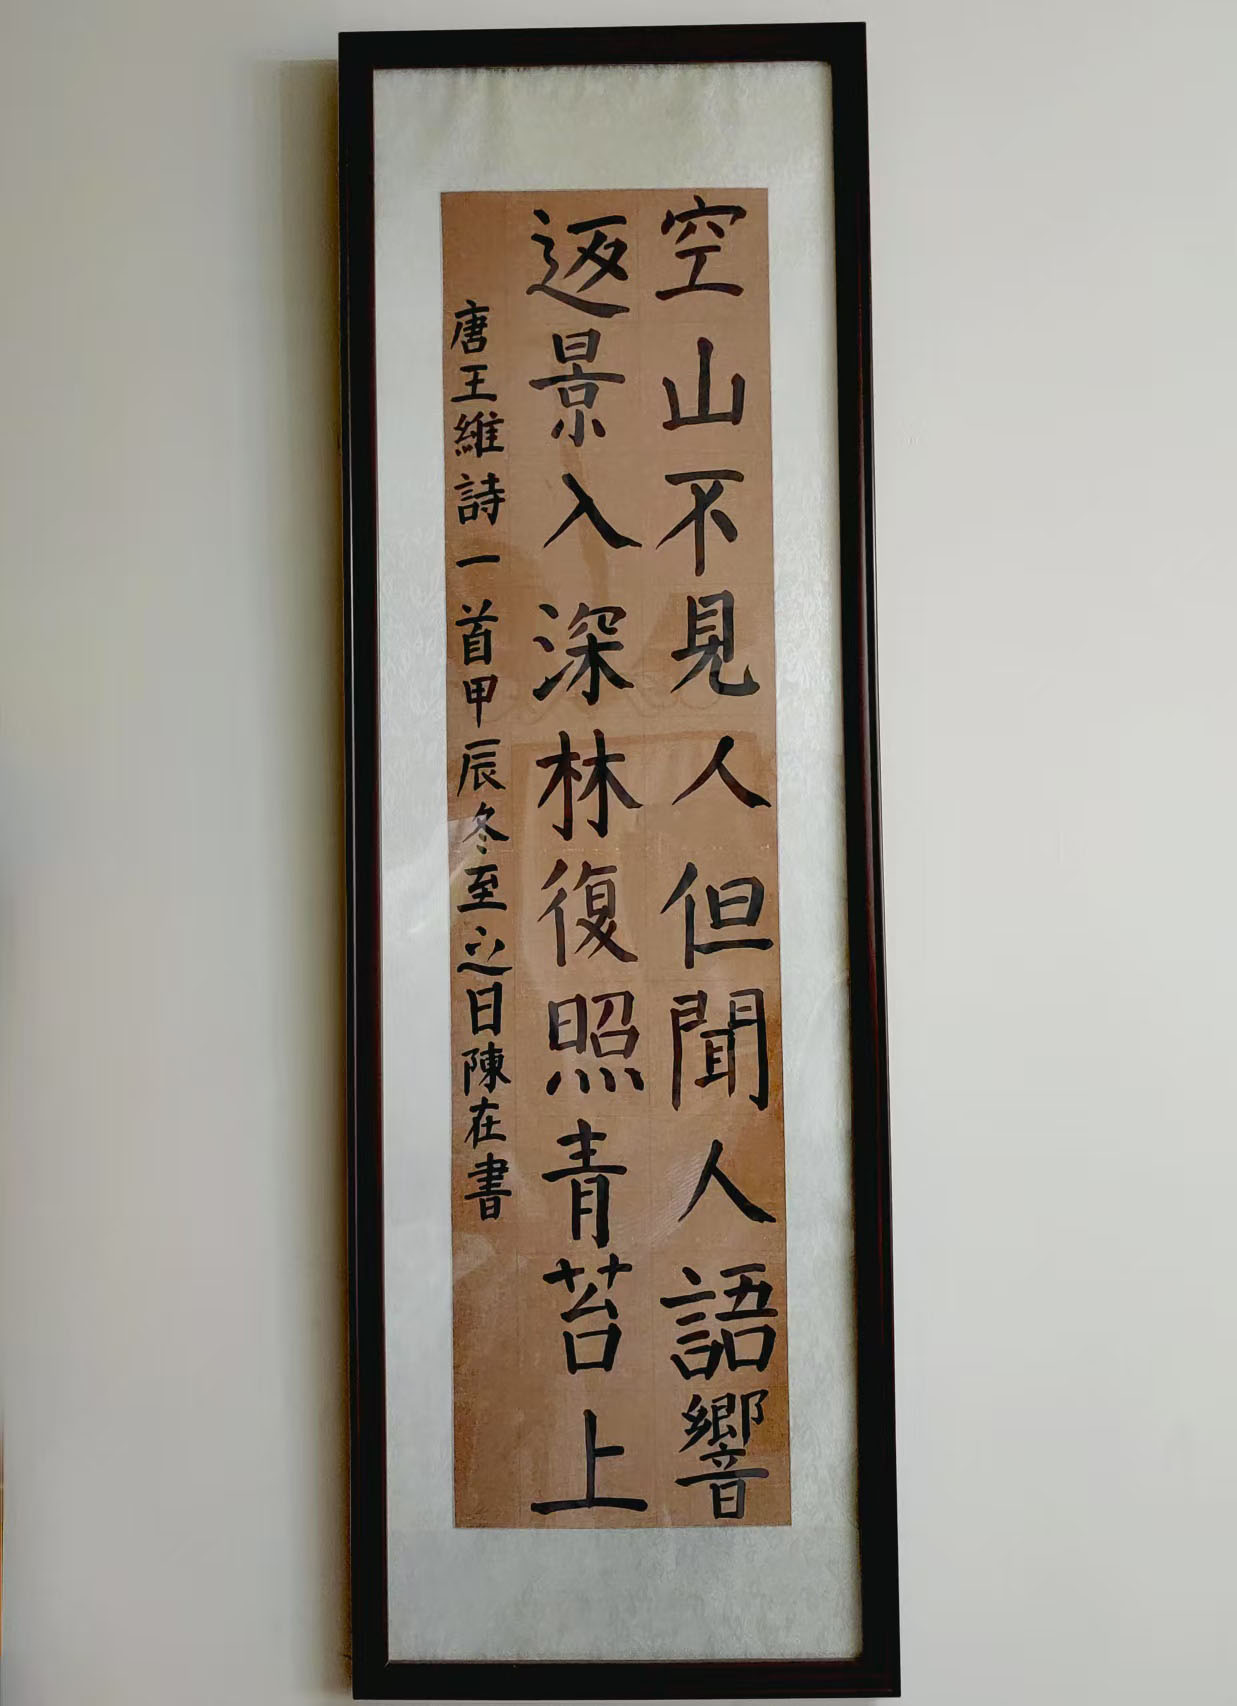 空山不見人但聞人語響
返景入深林復照青苔上
唐王維詩一首甲辰冬至之日陳在書